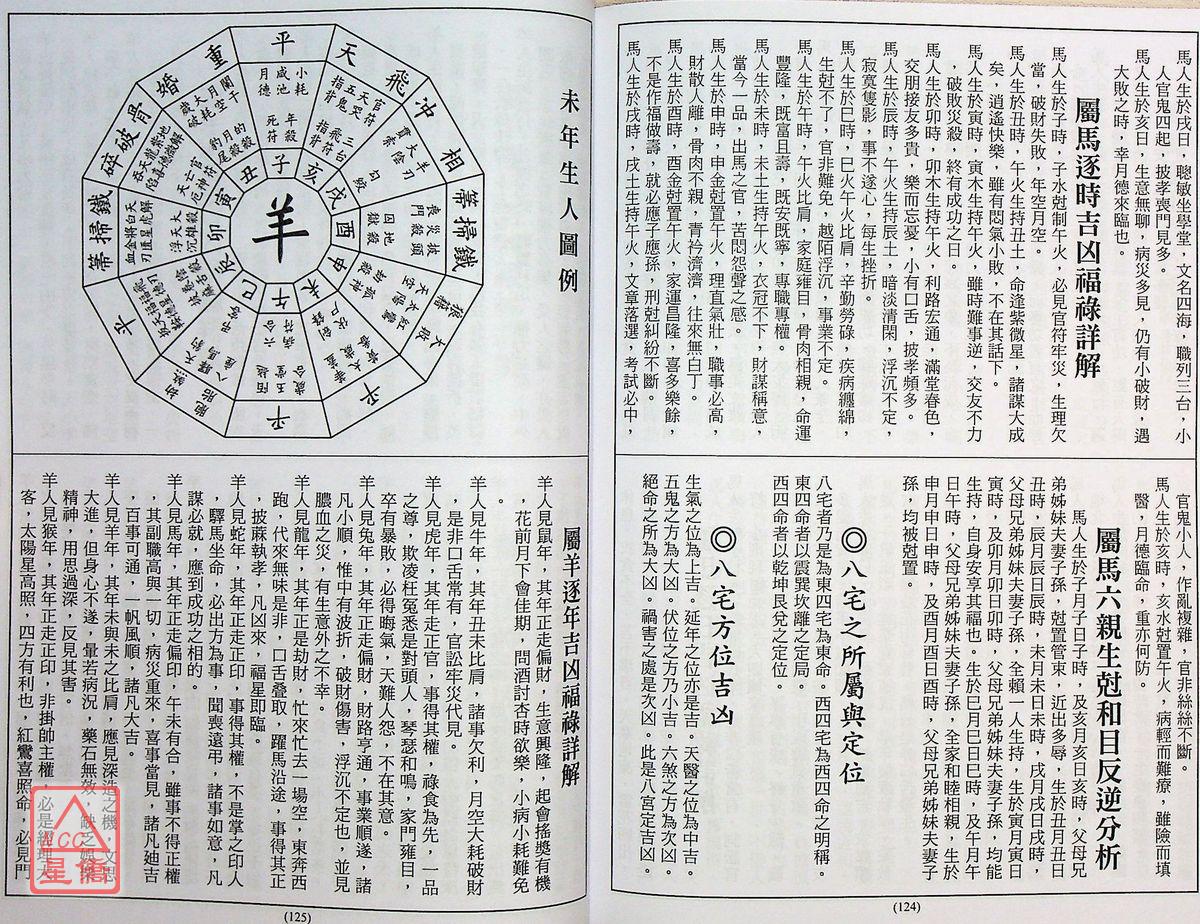 馬人生於戌日，聰敏坐學堂，文名四海，職列三台，小
人官鬼四起，披孝喪門見多。
馬人生於亥日，生意無聊，病災多見，仍有小破財，遇
大敗之時，幸月德來臨也。
屬馬逐時吉凶福祿詳解
馬人生於子時，子水尅制午火，必見官符牢災，生理欠
當，破財失敗，年空月空。
馬人生於丑時，午火生持丑土，命逢紫微星，諸謀大成
矣，逍遙快樂，雖有悶氣小敗，不在其話下。
馬人生於寅時，寅木生持午火，雖時難事逆，交友不力
，破敗災殺，終有成功之日。
馬人生於卯時，卯木生持午火，利路宏通，滿堂春色，
交朋接友多貴，樂而忘憂，小有口舌，披孝頻多。
馬人生於辰時，午火生持辰土，暗淡清閑，浮沉不定，
寂寞隻影，事不遂心，每生挫折。
馬人生於巳時，巳火午火比肩，辛勤勞碌，疾病纏綿，
生尅不了，官非難免，越陌浮沉，事業不定。
馬人生於午時，午火比肩，家庭雍目，骨肉相親，命運
豐隆，既富且壽，既安既寧，專職專權。
馬人生於未時，未土生持午火，衣冠不下，財謀稱意，
當今一品，出馬之官，苦悶怨聲之感。
馬人生於申時，申金尅置午火，理直氣壯，職事必高，
財散人離，骨肉不親，青衿濟濟，往來無白丁。
馬人生於酉時，酉金尅置午火，家運昌隆，喜多樂餘，
不是作福做壽，就必應子應孫，刑尅糾紛不斷。
馬人生於戌時，戌土生持午火，文章落選，考試必中，
官鬼小人，作亂複雜，官非絲絲不斷。
馬人生於亥時，亥水尅置午火，病輕而難療，雖險而填
醫，月德臨命，重亦何防。
屬馬六親生尅和目反逆分析
馬人生於子月子日子時，及亥月亥日亥時，父母兄
弟姊妹夫妻子孫，尅置管束，近出多辱，生於丑月丑日
丑時，辰月辰日辰時，未月未日未時，戌月戌日戌時，
父母兄弟姊妹夫妻子孫，全賴一人生持，生於寅月寅日
寅時，及卯月卯日卯時，父母兄弟姊妹夫妻子孫，均能
生持，自身安享其福也。生於巳月巳日巳時，及午月午
日午時，父母兄弟姊妹夫妻子孫，全家和睦相親，生於
申月申日申時，及酉月酉日酉時，父母兄弟姊妹夫妻子
孫，均被尅置。
◎八宅之所屬與定位
八宅者乃是為東四宅為東命。西四宅為西四命之明稱。
東四命者以震巽坎離之定局。
西四命者以乾坤艮兌之定位。
◎八宅方位吉凶
生氣之位為上吉。延年之位亦是吉。天醫之位為中吉。
五鬼之方為大凶。伏位之方乃小吉。六煞之方為次凶。
絕命之所為大凶。禍害之處是次凶。此是八宮定吉凶。
(124)
未年生人圖例
羊
子
丑
寅
卯
辰
巳
午
未
申
酉
戌
亥
平
重婚
骨破碎
鐵掃箒
天飛
沖相
鐵掃箒
小耗
咸池
月德
年殺
死符
屬羊逐年吉凶福祿詳解
羊人見鼠年，其年正走偏財，生意興隆，起會搖獎有機
，花前月下會佳期，問酒討杏時欲樂，小病小耗難免
。
羊人見牛年，其年丑未比肩，諸事欠利，月空大耗破財
，是非口舌常有，官訟牢災代見。
羊人見虎年，其年走正官，事得其權，祿食為先，一品
之尊，欺凌枉冤悉是對頭人，琴瑟和鳴，家門雍目，
卒有暴敗，必得晦氣，天難人怨，不在其意。
羊人見兔年，其年正走偏財，財路亨通，事業順遂，諸
凡小順，惟中有波折，破財傷害，浮沉不定也，並見
膿血之災，有生意外之不幸。
羊人見龍年，其年正是劫財，忙來忙去一場空，東奔西
跑，代來無味是非，口舌叠取，躍馬沿途，事得其正
，披蔴執孝，凡凶來，福星即臨。
羊人見蛇年，其年正走正印，事得其權，不是掌之印人
，驛馬坐命，必出方為事，聞喪遠弔，諸事如意，凡
謀必就，應到成功之相的。
羊人見馬年，其年正走偏印，午未有合，雖事不得正權
，其副職高與一切，病災重來，喜事當見，諸凡廸吉
，百事可通，一帆風順，諸凡大吉。
羊人見羊年，其年未與未之比肩，應見深造之機，文思
大進，但身心不遂，暈若病況，藥石無效，缺乏娛樂
精神，用思過深，反見其害。
羊人見猴年，其年正走正印，非掛帥主權，必是經理大
客，太陽星高照，四方有利也，紅鸞喜照命，必見鬥
(125)
CC
星僑